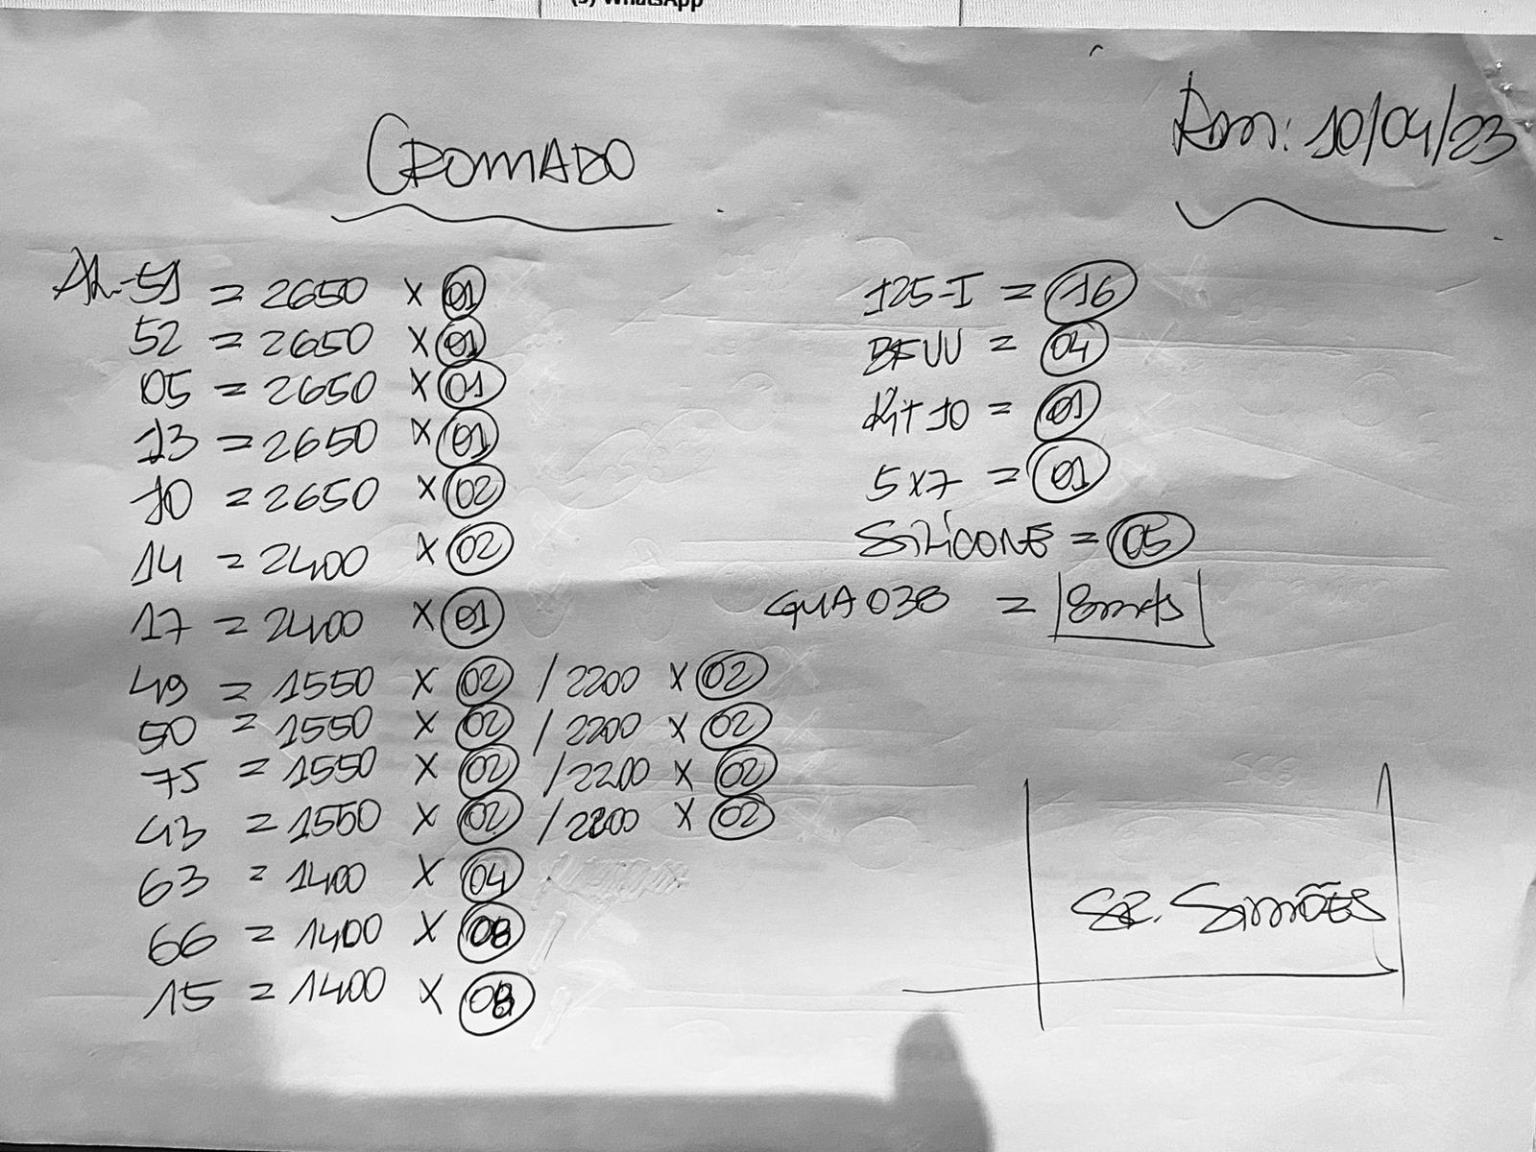 (3) WhatsApp
CROMADO
10/04/23
AL-51 = 2650 x 01
52 = 2650 x 01
05 = 2650 x 01
13 = 2650 x 01
10 = 2650 x 02
14 = 2400 x 02
17 = 2400 x 01
49 = 1550 x 02 / 2200 x 02
50 = 1550 x 02 / 2200 x 02
75 = 1550 x 02 / 2200 x 02
43 = 1550 x 02 / 2200 x 02
63 = 1400 x 04
66 = 1400 x 08
15 = 1400 x 08
125-I = 16
= 04
Kit 10 = 01
5x7 = 01
SILICONE = 05
GUA 038 = 8mts
SR. SIMÕES